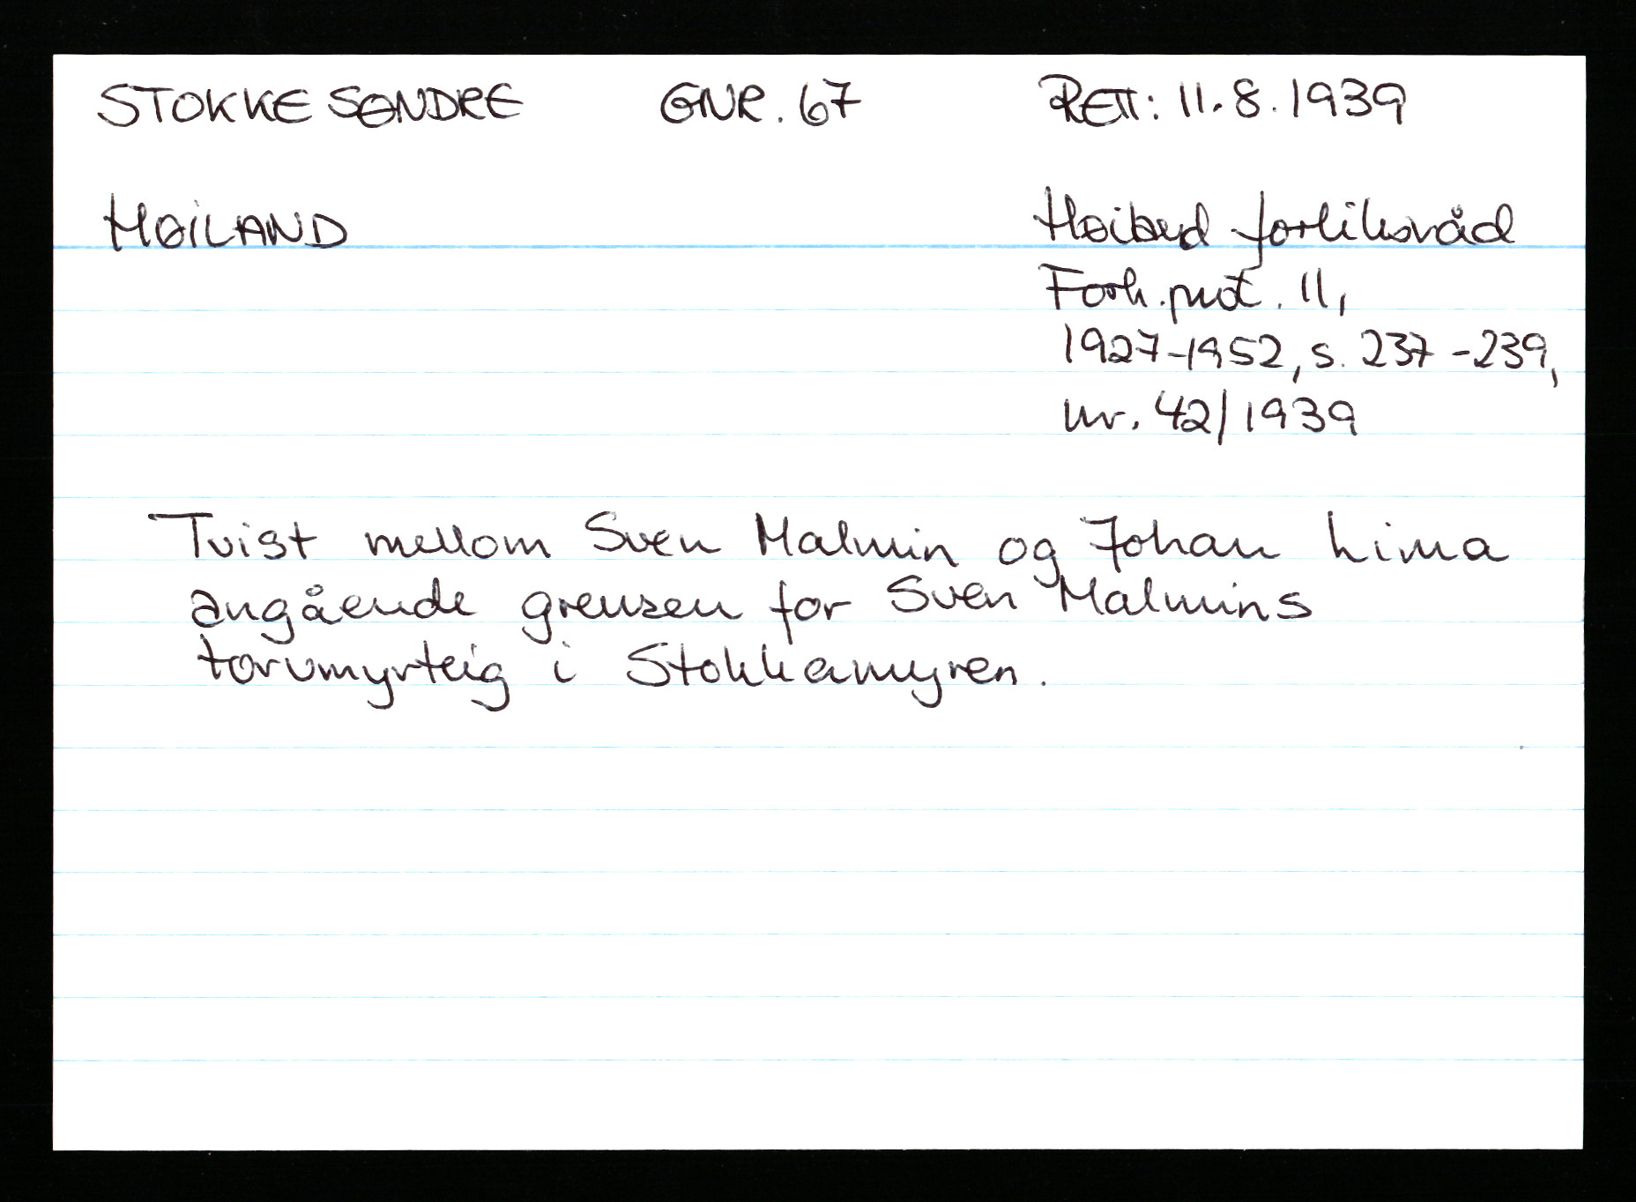 STOKKE SØNDRE GNR. 67 RETT: 11.8.1939
HØILAND Høiland forliksråd
Forh.prot. 11,
1927-1952, s. 237-239,
nr. 42/1939
Tvist mellom Sven Malmin og Johan Lima
angående grensen for Sven Malmins
torvmyrteig i Stokkamyren.